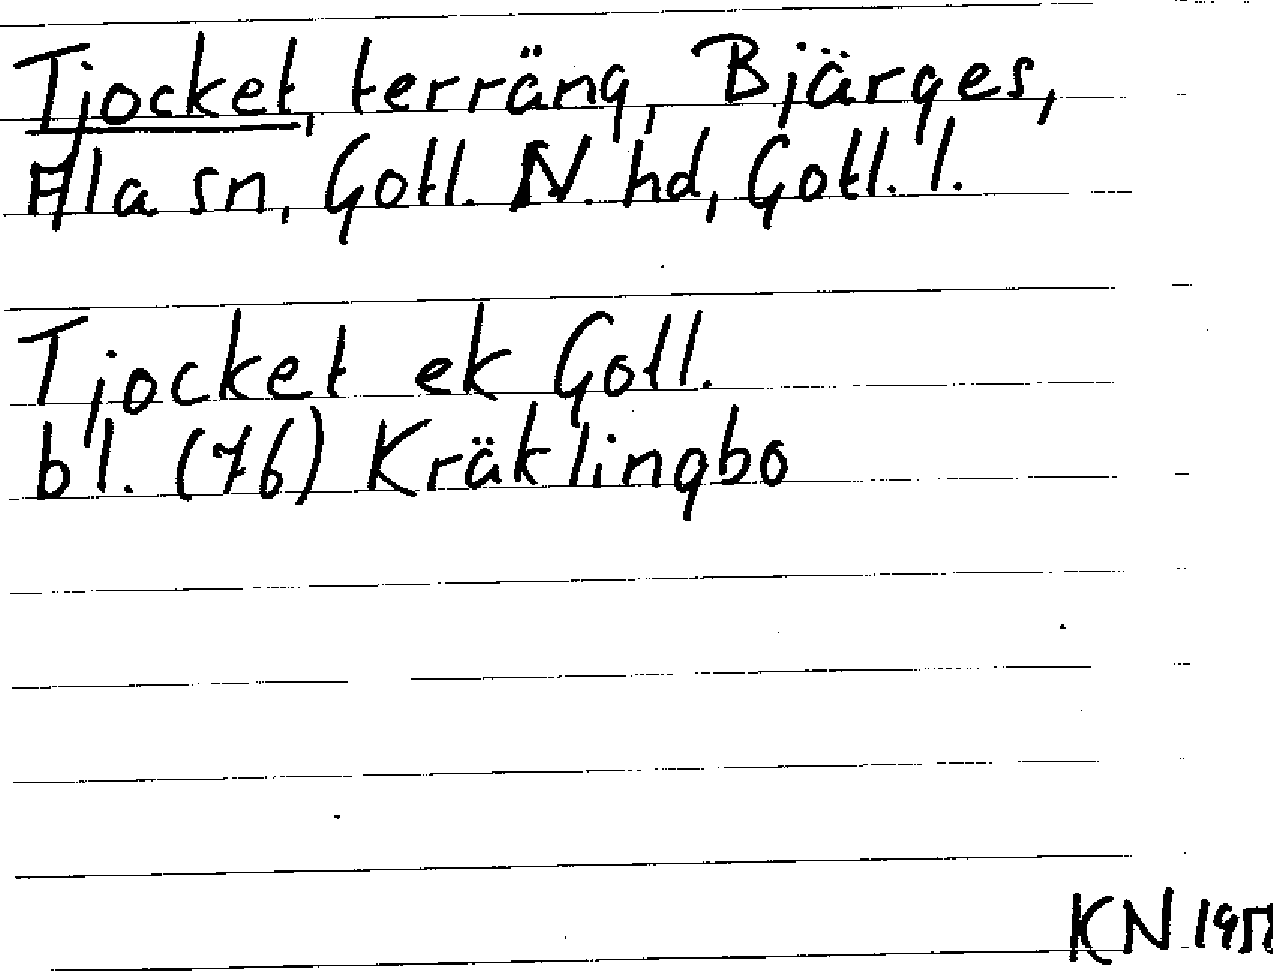 Tjocket, terräng, Bjärges,
Ala sn, Gotl. N. hd, Gotl. l.
Tjocket ek Gotl.
bl. (76) Kräklingbo
KN